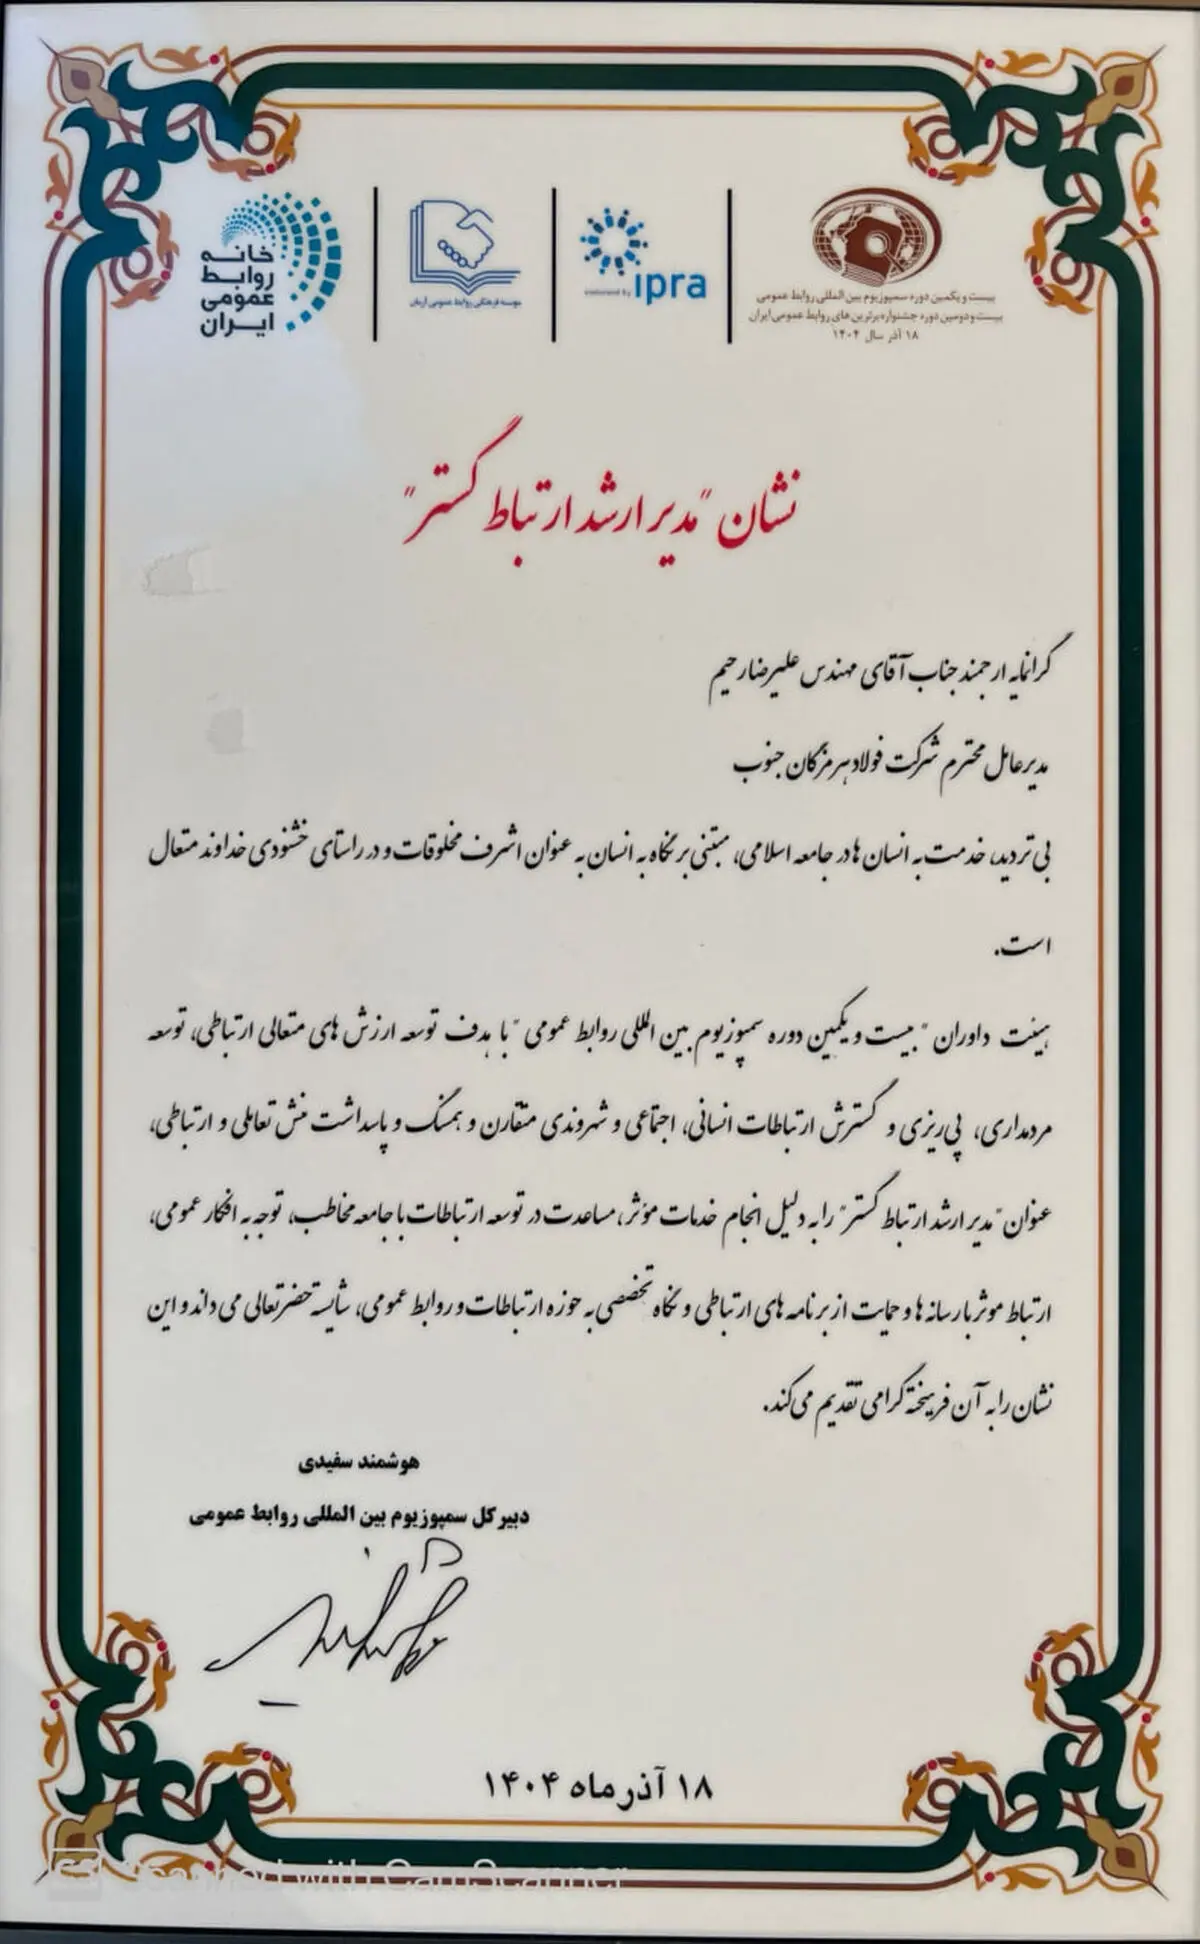 خانه
روابط
عمومی
ایران
موسسه فرهنگی روابط عمومی آرمان
endorsed by ipra
بیست و یکمین دوره سمپوزیوم بین المللی روابط عمومی
بیست و دومین دوره جشنواره برترین های روابط عمومی ایران
۱۸ آذر سال ۱۴۰۴
نشان "مدیر ارشد ارتباط گستر"
گرانمایه ارجمند جناب آقای مهندس علیرضا رحیم
مدیرعامل محترم شرکت فولاد هرمزگان جنوب
بی تردید، خدمت به انسان ها در جامعه اسلامی، مبتنی بر نگاه به انسان به عنوان اشرف مخلوقات و در راستای خشنودی خداوند متعال
است.
هیئت داوران "بیست و یکمین دوره سمپوزیوم بین المللی روابط عمومی" با هدف توسعه ارزش های متعالی ارتباطی، توسعه
مردمداری، پی‌ریزی و گسترش ارتباطات انسانی، اجتماعی و شهروندی متقارن و همسنگ و پاسداشت منش تعاملی و ارتباطی،
عنوان "مدیر ارشد ارتباط گستر" را به دلیل انجام خدمات مؤثر، مساعدت در توسعه ارتباطات با جامعه مخاطب، توجه به افکار عمومی،
ارتباط موثر با رسانه ها و حمایت از برنامه های ارتباطی و نگاه تخصصی به حوزه ارتباطات و روابط عمومی، شایسته حضرتعالی می داند و این
نشان را به آن فرهیخته گرامی تقدیم می‌کند.
هوشمند سفیدی
دبیر کل سمپوزیوم بین المللی روابط عمومی
۱۸ آذر ماه ۱۴۰۴
CS Scanned with CamScanner